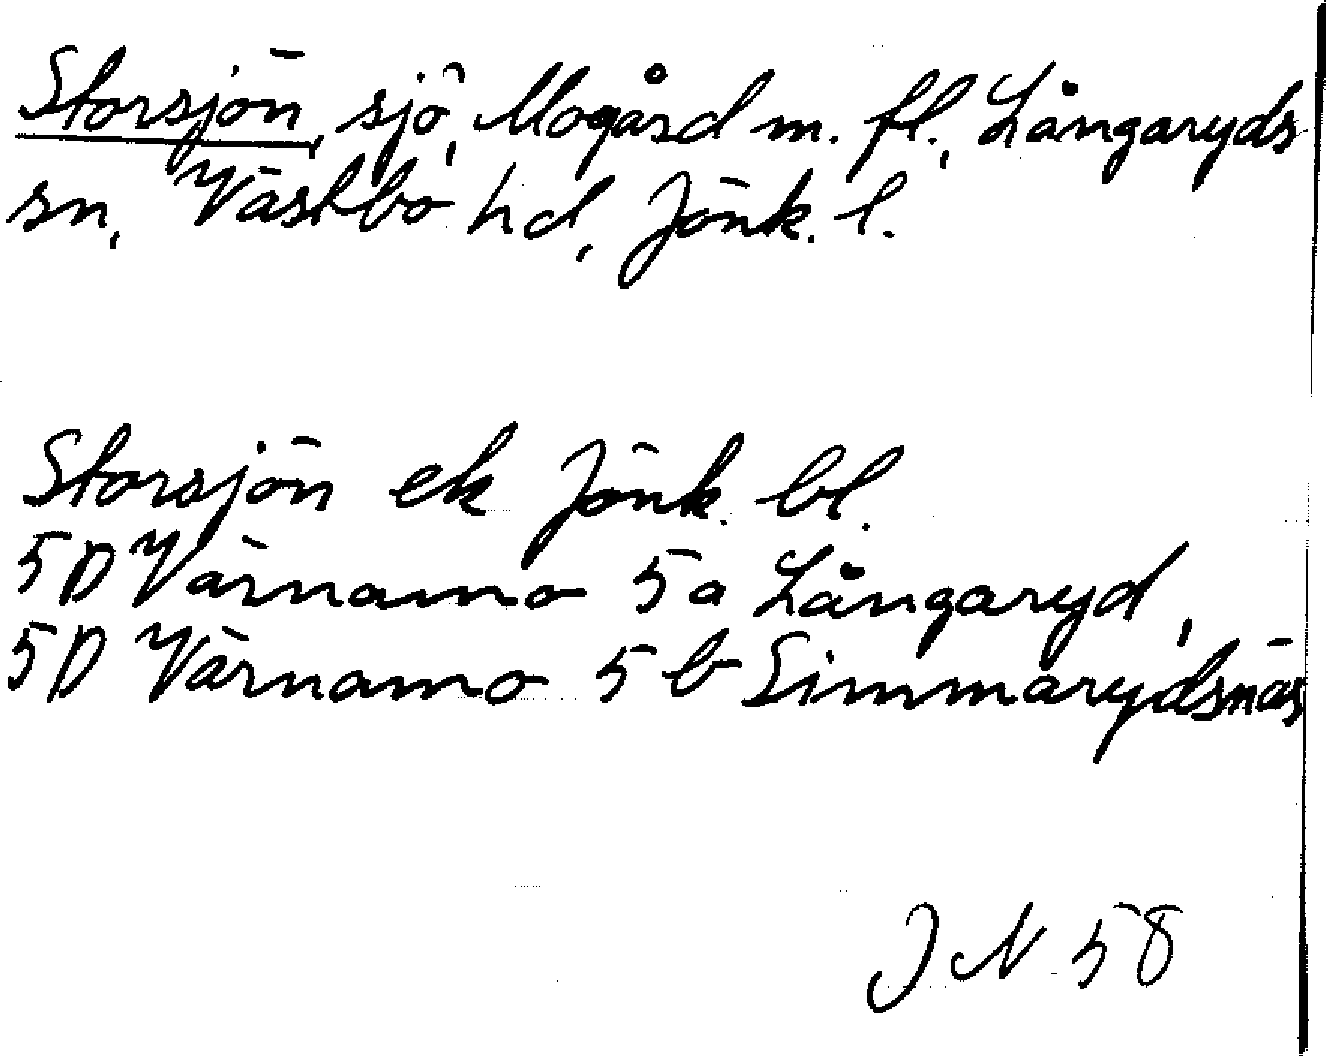 Storsjön, sjö, Mogård m. fl., Långaryds
sn, Västbo hd, Jönk. l.
Storsjön ek Jönk. bl.
5D Värnamo 5a Långaryd,
5D Värnamo 5b Simmarydsnäs
J N 58